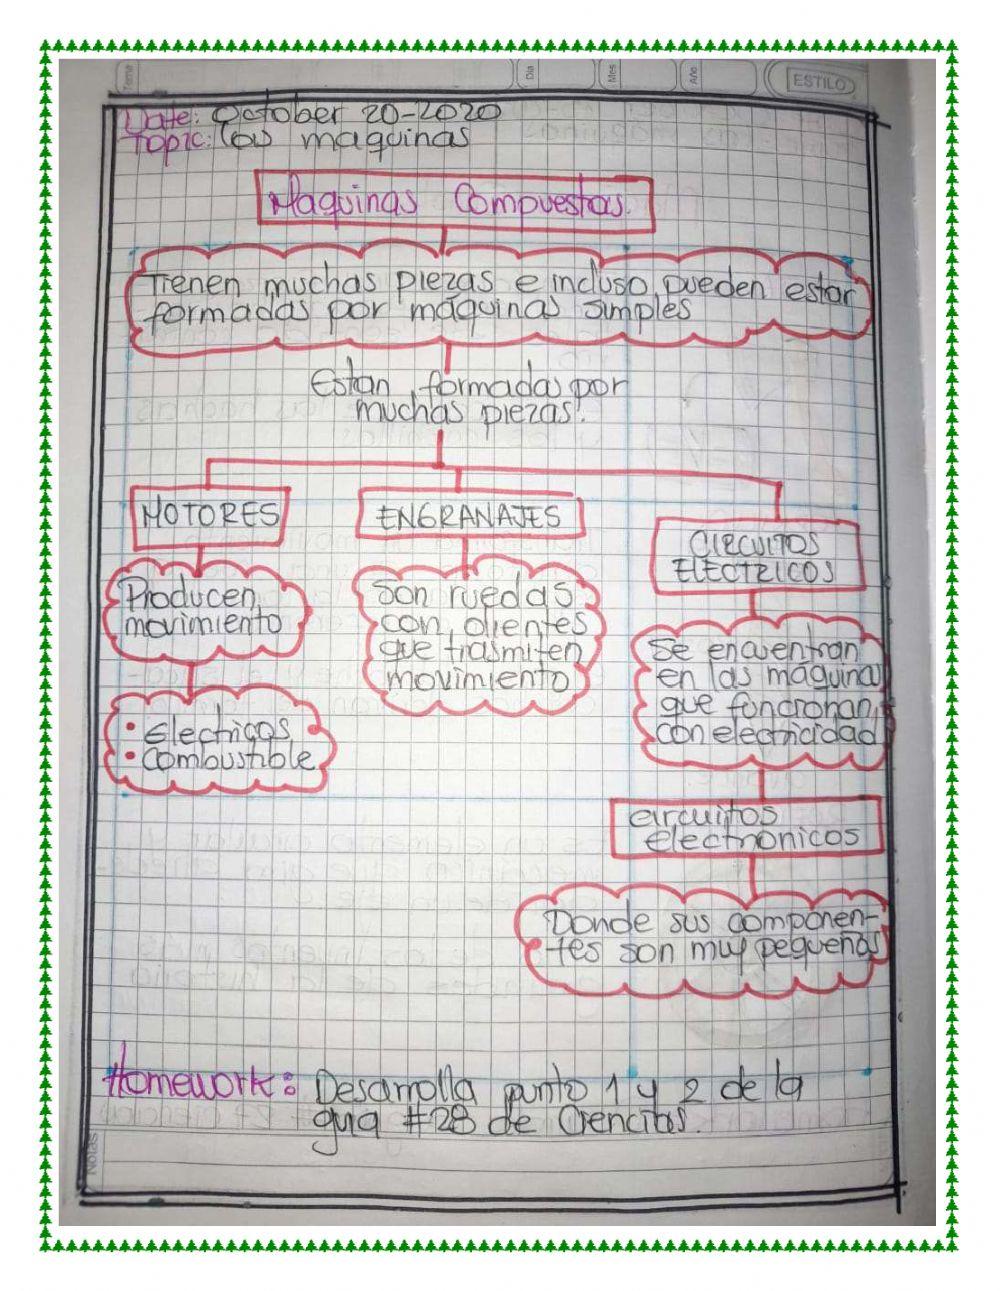 Tema
Dia
Mes
Año
ESTILO
Date: October 20-2020
Topic: las maquinas
Maquinas Compuestas.
Tienen muchas piezas e incluso pueden estar
formadas por máquinas simples
Estan formadas por
muchas piezas.
MOTORES
ENGRANAJES
CIRCUITOS
ELECTRICOS
Producen
movimiento
Son ruedas
con dientes
que trasmiten
movimiento
Se encuentran
en las máquinas
que funcionan
con electricidad
• Electricos
• Combustible
circuitos
electronicos
Donde sus componen-
tes son muy pequeños
Homework: Desarrolla punto 1 y 2 de la
guia #28 de Ciencias.
Notas